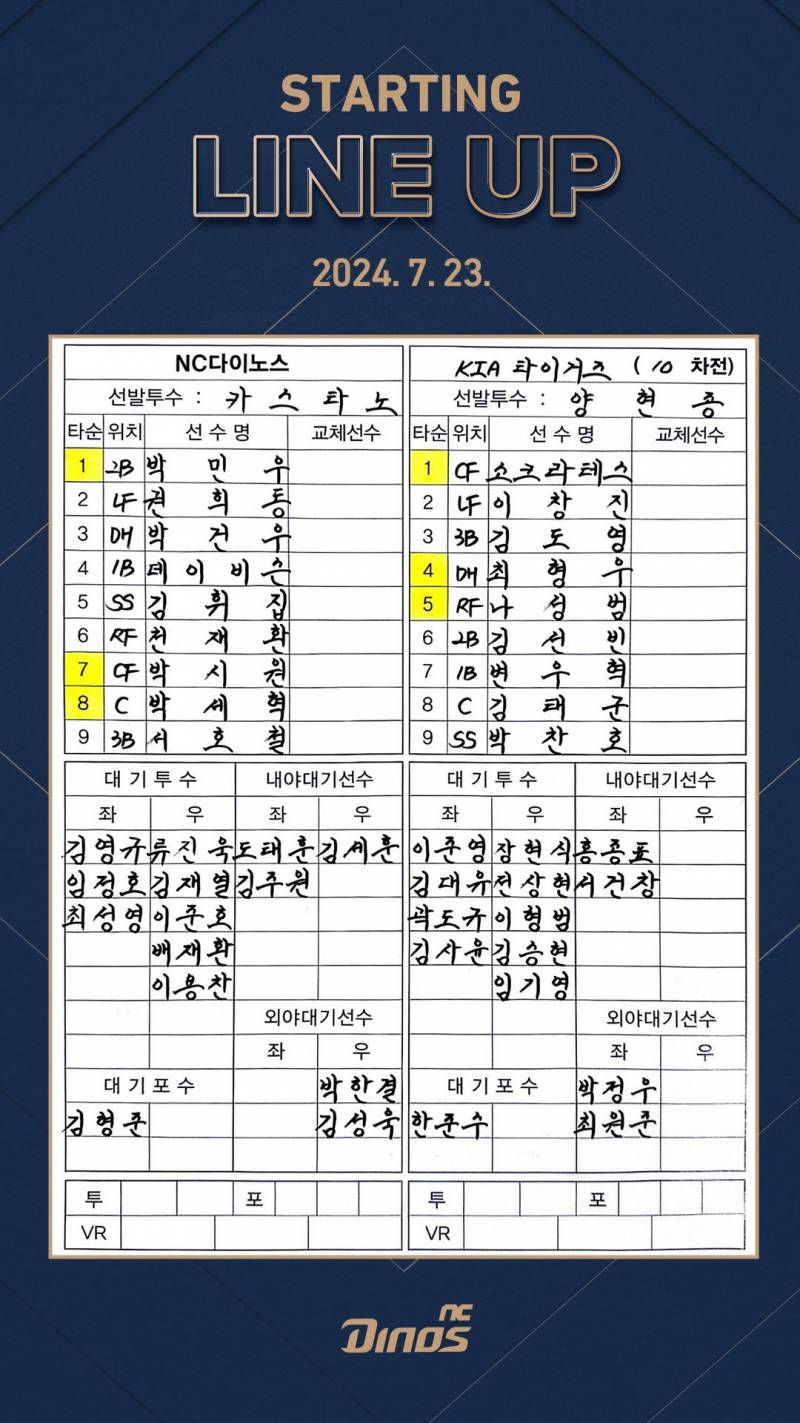 STARTING
LINE UP
2024. 7. 23.
NC다이노스
선발투수 : 카스타노
타순 위치 선수명 교체선수
1 2B 박민우
2 LF 권희동
3 DH 박건우
4 1B 데이비슨
5 SS 김휘집
6 RF 천재환
7 CF 박시원
8 C 박세혁
9 3B 서호철
대기투수 내야대기선수
좌 우 좌 우
김영규 류진욱 도태훈 김세훈
임정호 김재열 김주원
최성영 이준호
배재환
이용찬
외야대기선수
좌 우
대기포수 박한결
김형준 김성욱
투 포
VR
KIA 타이거즈 (10 차전)
선발투수 : 양현종
타순 위치 선수명 교체선수
1 CF 소크라테스
2 LF 이창진
3 3B 김도영
4 DH 최형우
5 RF 나성범
6 2B 김선빈
7 1B 변우혁
8 C 김태군
9 SS 박찬호
대기투수 내야대기선수
좌 우 좌 우
이준영 장현식 홍종표
김대유 전상현 서건창
곽도규 이형범
김사윤 김승현
임기영
외야대기선수
좌 우
대기포수 박정우
한준수 최원준
투 포
VR
NC
DINOS